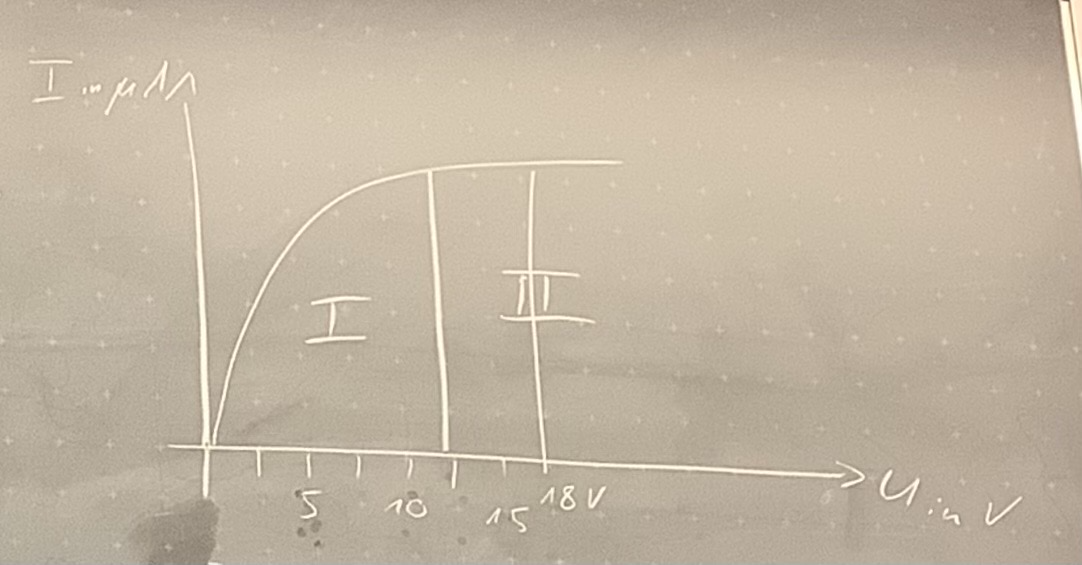 I in µA
I
II
5
10
15
18V
U in V